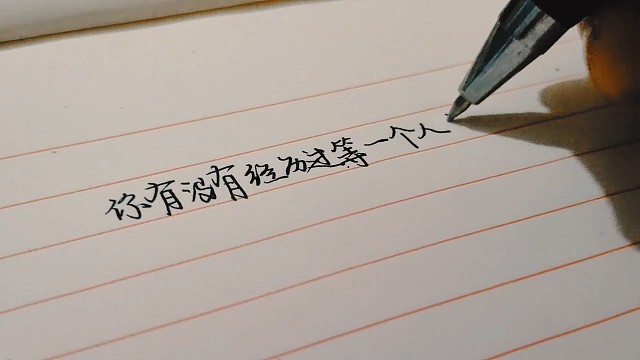 你有没有经历过等一个人